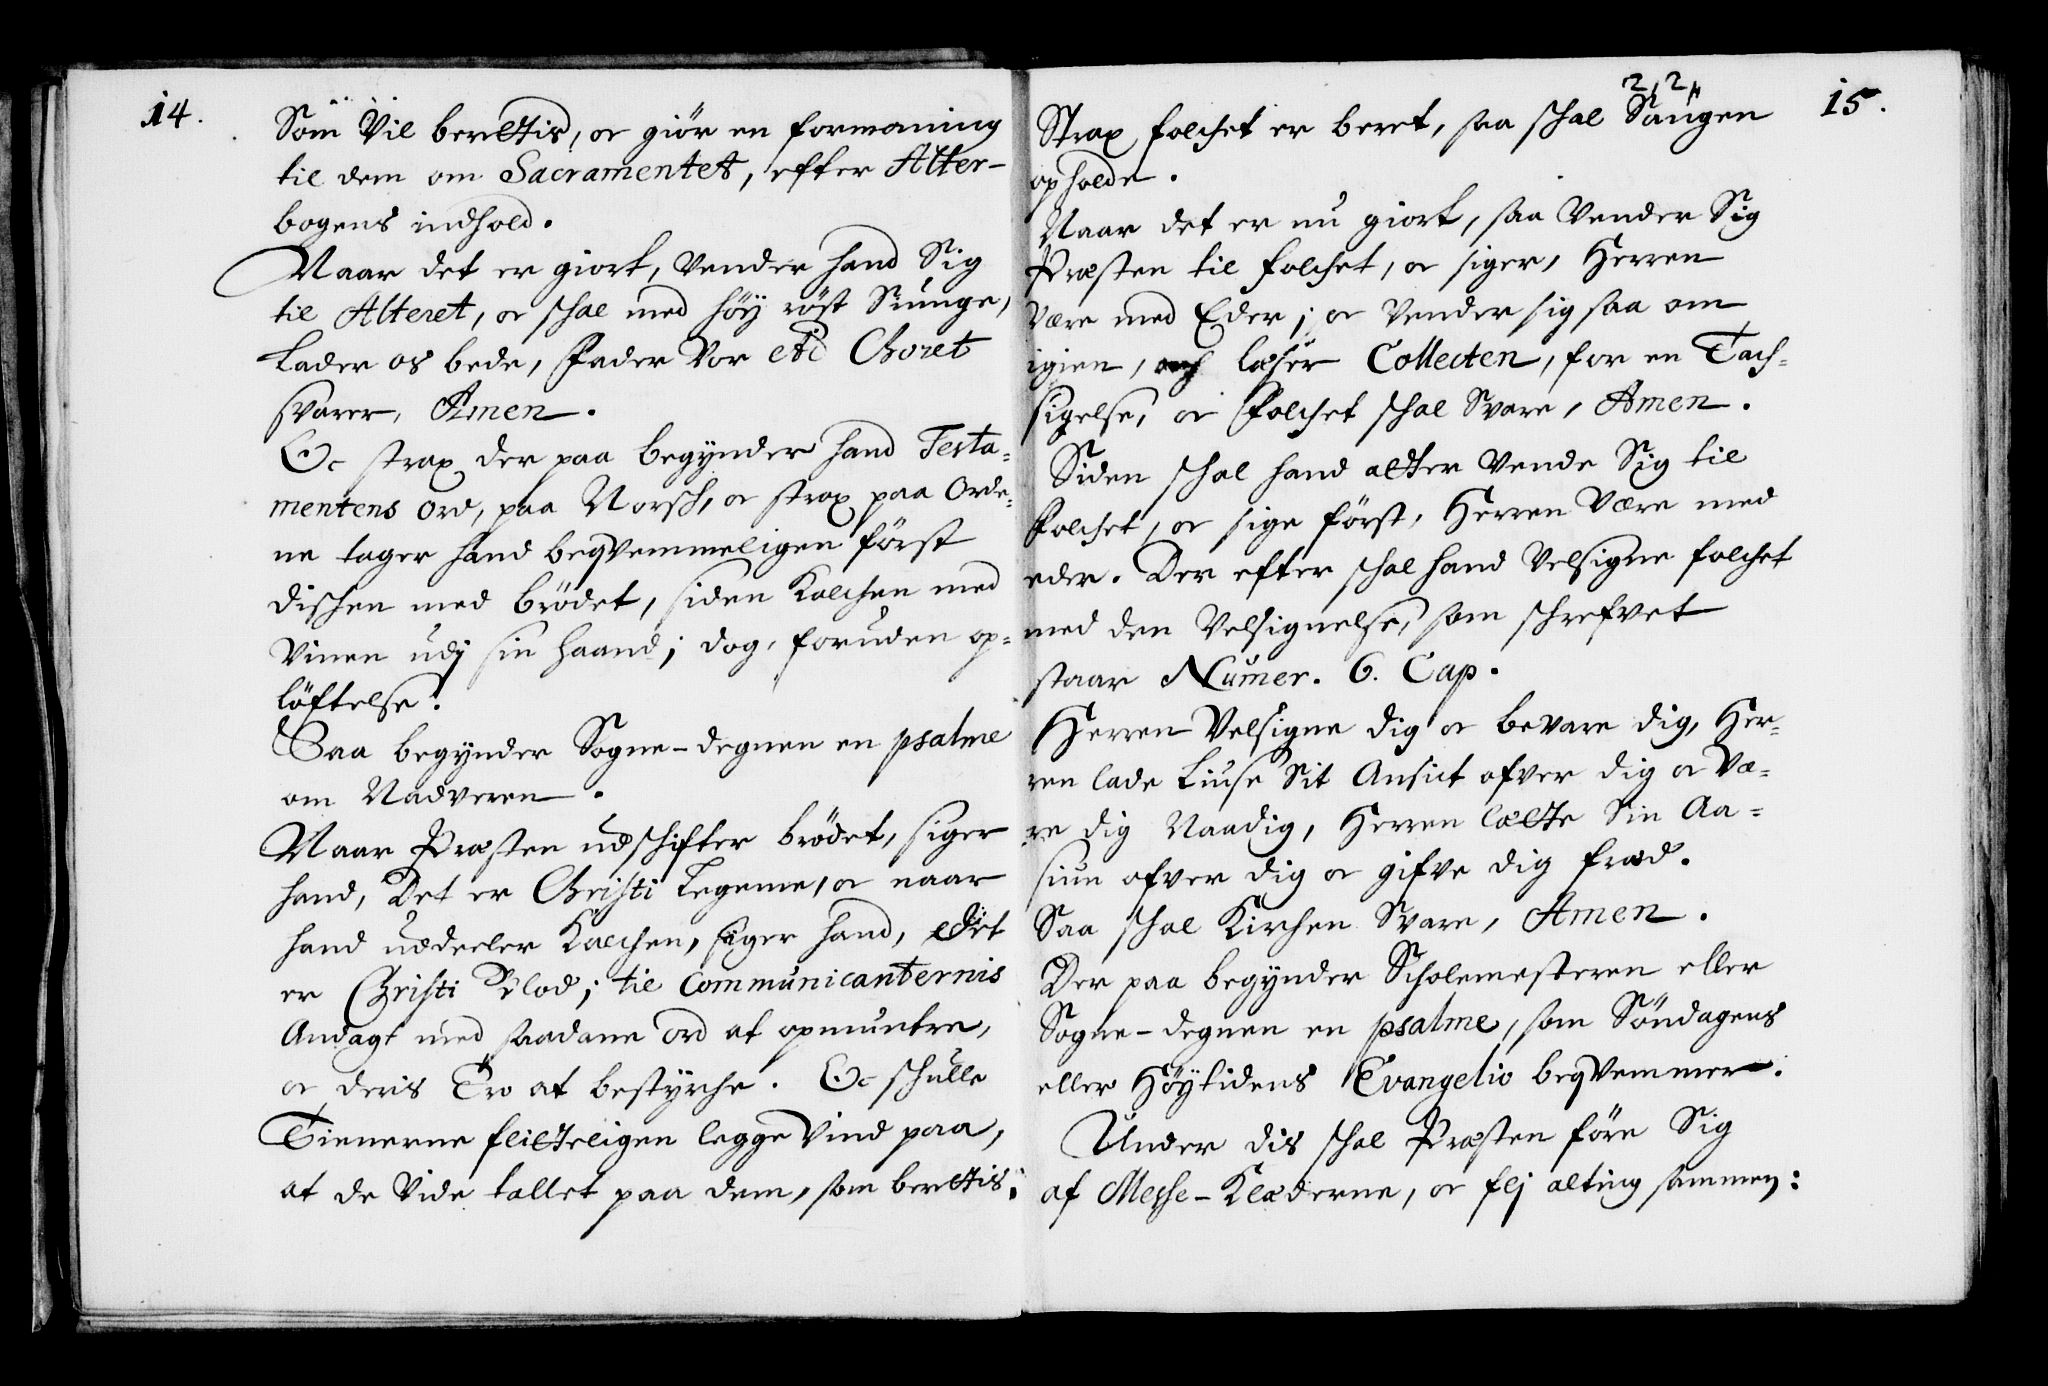 14.
Som Vil berettis, oc giör en formaning
til dem om Sacramentet, efter Alter-
bogens indhold.
Naar det er giort, vender hand Sig
til Alteret, oc schal med höÿ röst Siunge,
Lader os bede, Fader Vor etc Choret
svarer, Amen.
Oc strax der paa begÿnder hand Testa-
mentens ord, paa Norsch, oc strax paa Orde-
ne tager hand beqvemmeligen först
dischen med brödet, siden Kalchen med
Vinen udj sin haand; dog, foruden op-
löftelse.
Saa begÿnder Sogne-degnen en psalme
om Nadveren.
Naar Præsten udschifter brödet, siger
hand, Det er Christi Legeme, oc naar
hand uddeeler Kalchen, siger hand, Det
er Christi Blod; til Communicanternis
Andagt med saadane ord at opmuntre,
oc deris Tro at bestÿrche. Oc schulle
Tienerne flitteligen legge Vind paa,
at de Vide tallet paa dem, som berettis.
15.
2, 2,,
Strax folchet er beret, saa schal Sangen
opholde.
Naar det er nu giort, saa Vender Sig
Præsten til folchet, oc siger, Herren
være med Eder; oc Vender sig saa om
igien, och læser Collecten, for en Tach-
sigelse, oc Folchet schal Svare, Amen.
Siden schal hand atter Vende Sig til
Folchet, oc sige först, Herren Være med
eder. Der efter schal hand Velsigne folchet
med den Velsignelse, som schrefvet
staar Numer. 6. Cap.
Herren Velsigne dig oc bevare dig, Her-
ren lade Liuse Sit Ansict ofver dig oc Væ-
re dig Naadig, Herren lætte Sin Aa-
siun ofver dig oc gifve dig fred.
Saa schal Kirchen Svare, Amen.
Der paa begÿnder Scholemesteren eller
Sogne-degnen en psalme, som Söndagens
eller Höÿtidens Evangelio beqvemmer.
Under dis schal Præsten före Sig
af Messe-Klæderne, oc flj alting sammen: